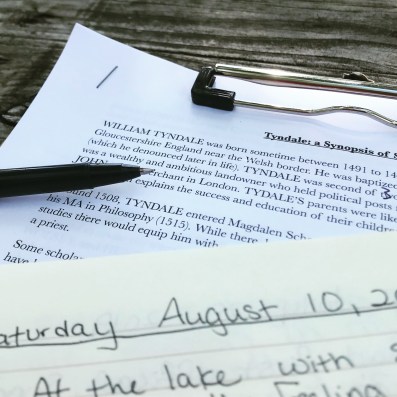 Tyndale: a Synopsis of
WILLIAM TYNDALE was born sometime between 1491 to
Gloucestershire England near the Welsh border. He was baptized
(which he denounced later in life). TYNDALE was second of 3
was a wealthy and ambitious landowner who held political posts
JOHN merchant in London. TYDALE'S parents were
explains the success and education of their
1508, TYNDALE entered Magdalen
his MA in Philosophy (1515). While there
studies there would equip him with
a priest.
Some
Saturday August 10,
At the lake with